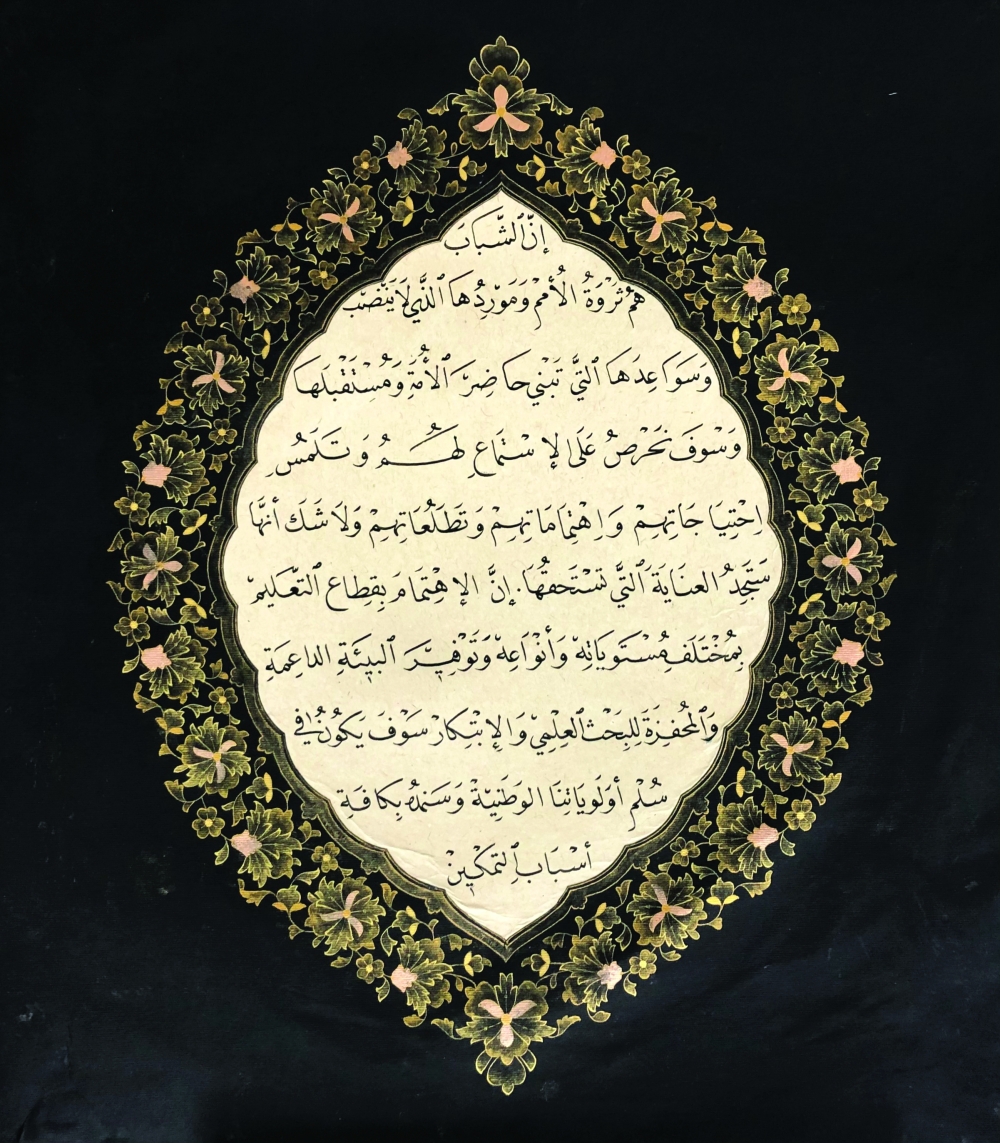 إن الشباب
هم ثروة الأمم وموردها الذي لا ينضب
وسواعدها التي تبني حاضر الأمة ومستقبلها
وسوف نحرص على الإستماع لهم وتلمس
احتياجاتهم واهتماماتهم وتطلعاتهم ولا شك أنها
ستجد العناية التي تستحقها. إن الإهتمام بقطاع التعليم
بمختلف مستوياته وأنواعه وتوفير البيئة الداعمة
والمحفزة للبحث العلمي والإبتكار سوف يكون في
سلم أولوياتنا الوطنية وسنمده بكافة
أسباب التمكين